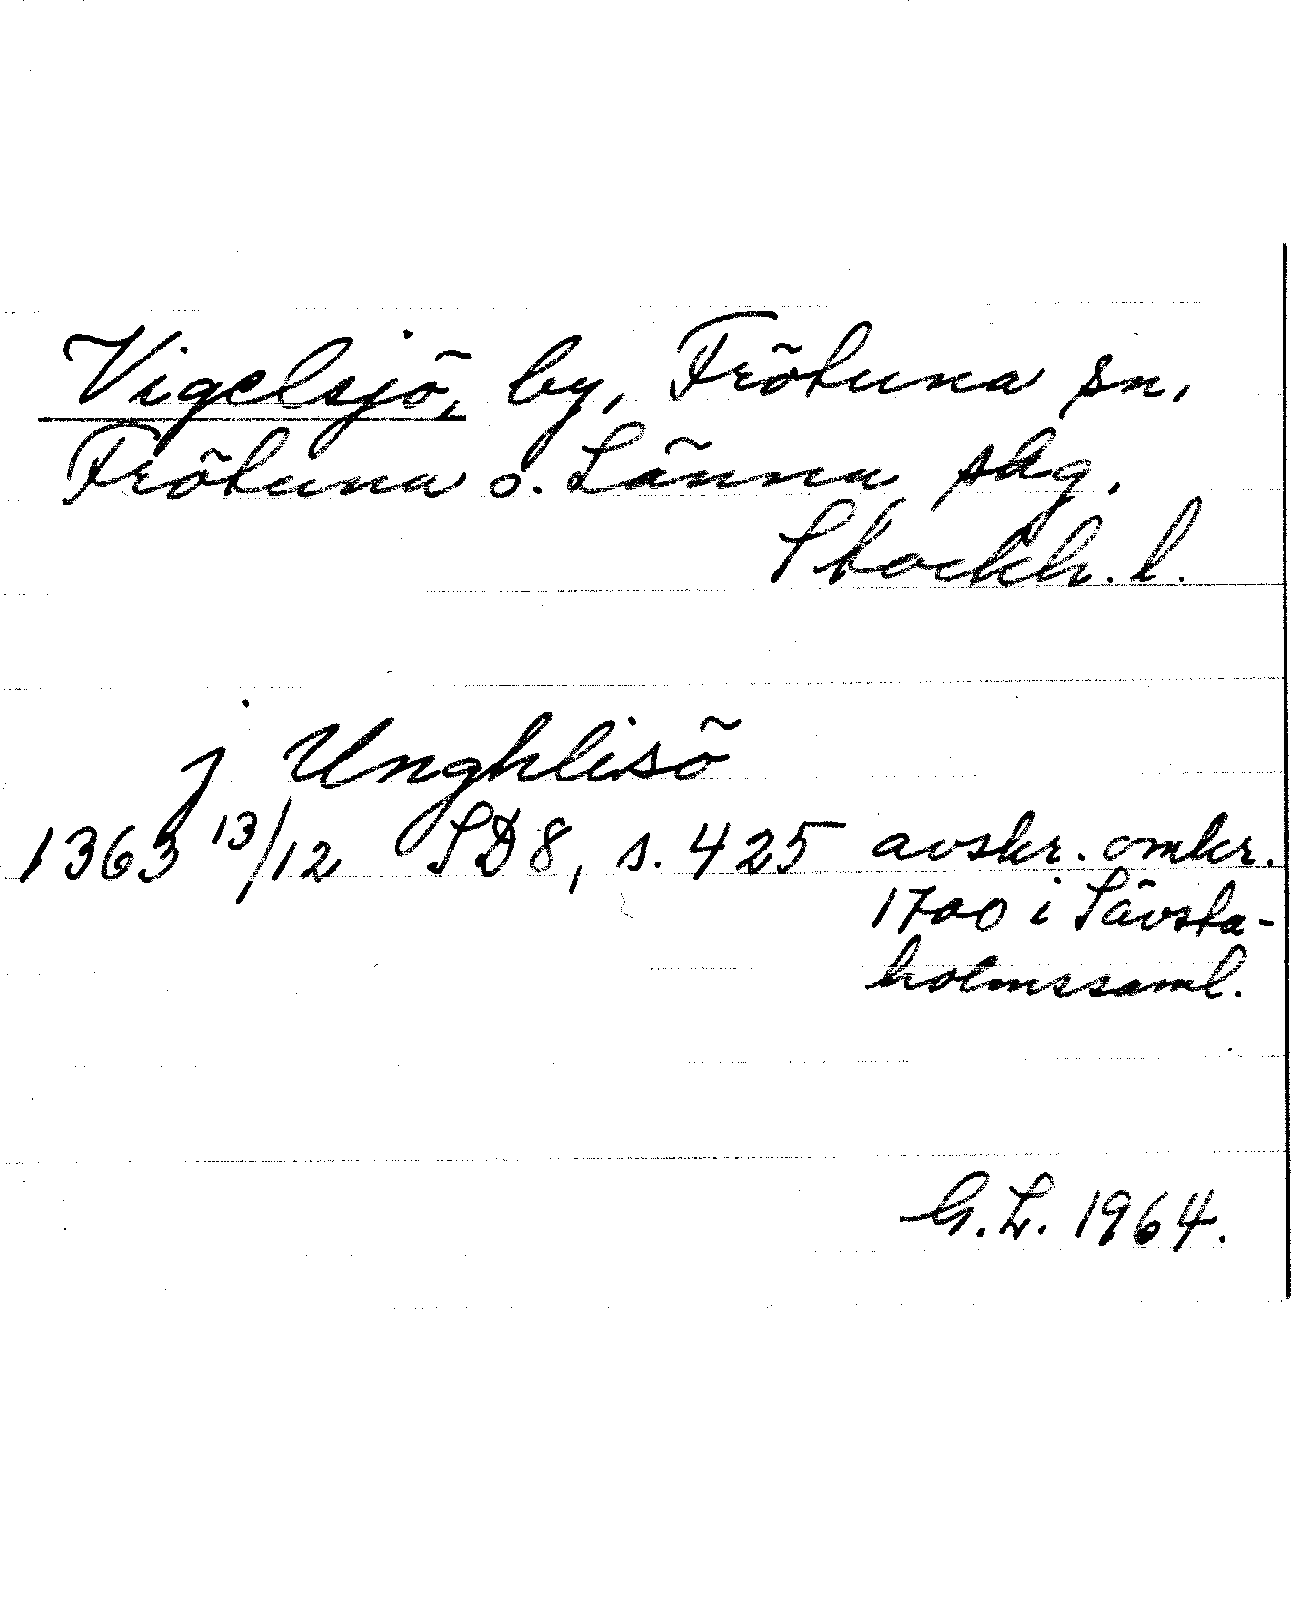 Vigelsjö, by, Frötuna sn,
Frötuna o. Länna skg,
Stockh. l.
j Unghlisö
1363 13/12 SD 8, s. 425 avskr. omkr.
1700 i Sävsta-
holmssaml.
G. L. 1964.